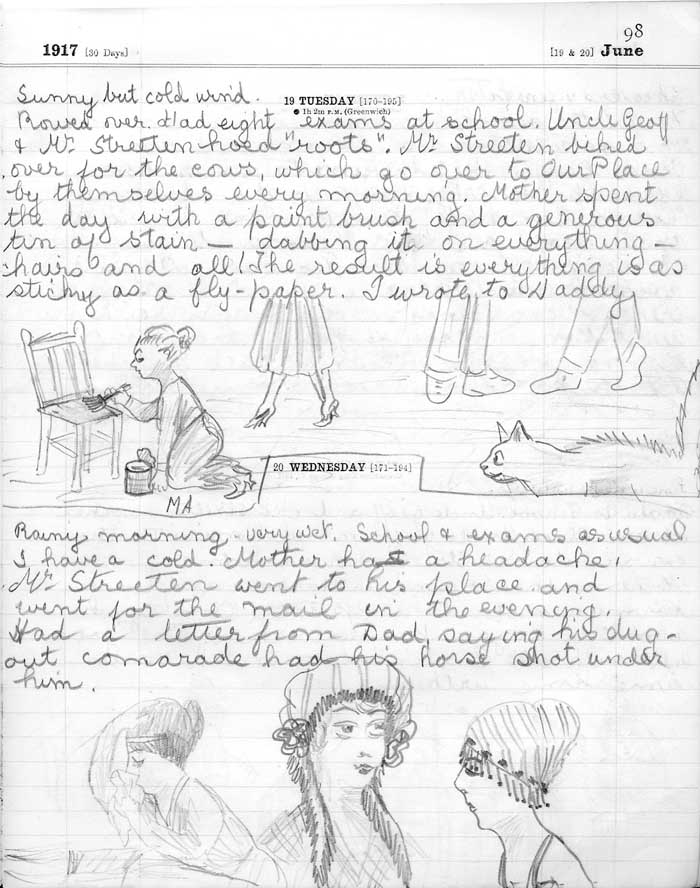 98
1917 [30 Days] [19 & 20] June
Sunny but cold wind.
19 TUESDAY [170-195]
● 1h 2m P.M. (Greenwich)
Rowed over. Had eight exams at school. Uncle Geoff
& Mr Streeten hoed "roots". Mr Streeten biked
over for the cows, which go over to Our Place
by themselves every morning. Mother spent
the day with a paint brush and a generous
tin of stain — dabbing it on everything —
chairs and all! The result is everything is as
sticky as a fly-paper. I wrote to Daddy
20 WEDNESDAY [171-194]
MA
Rainy morning - very wet. School & exams as usual
I have a cold. Mother has a headache.
Mr Streeten went to his place and
went for the mail in the evening.
Had a letter from Dad, saying his dug-
out comarade had his horse shot under
him.